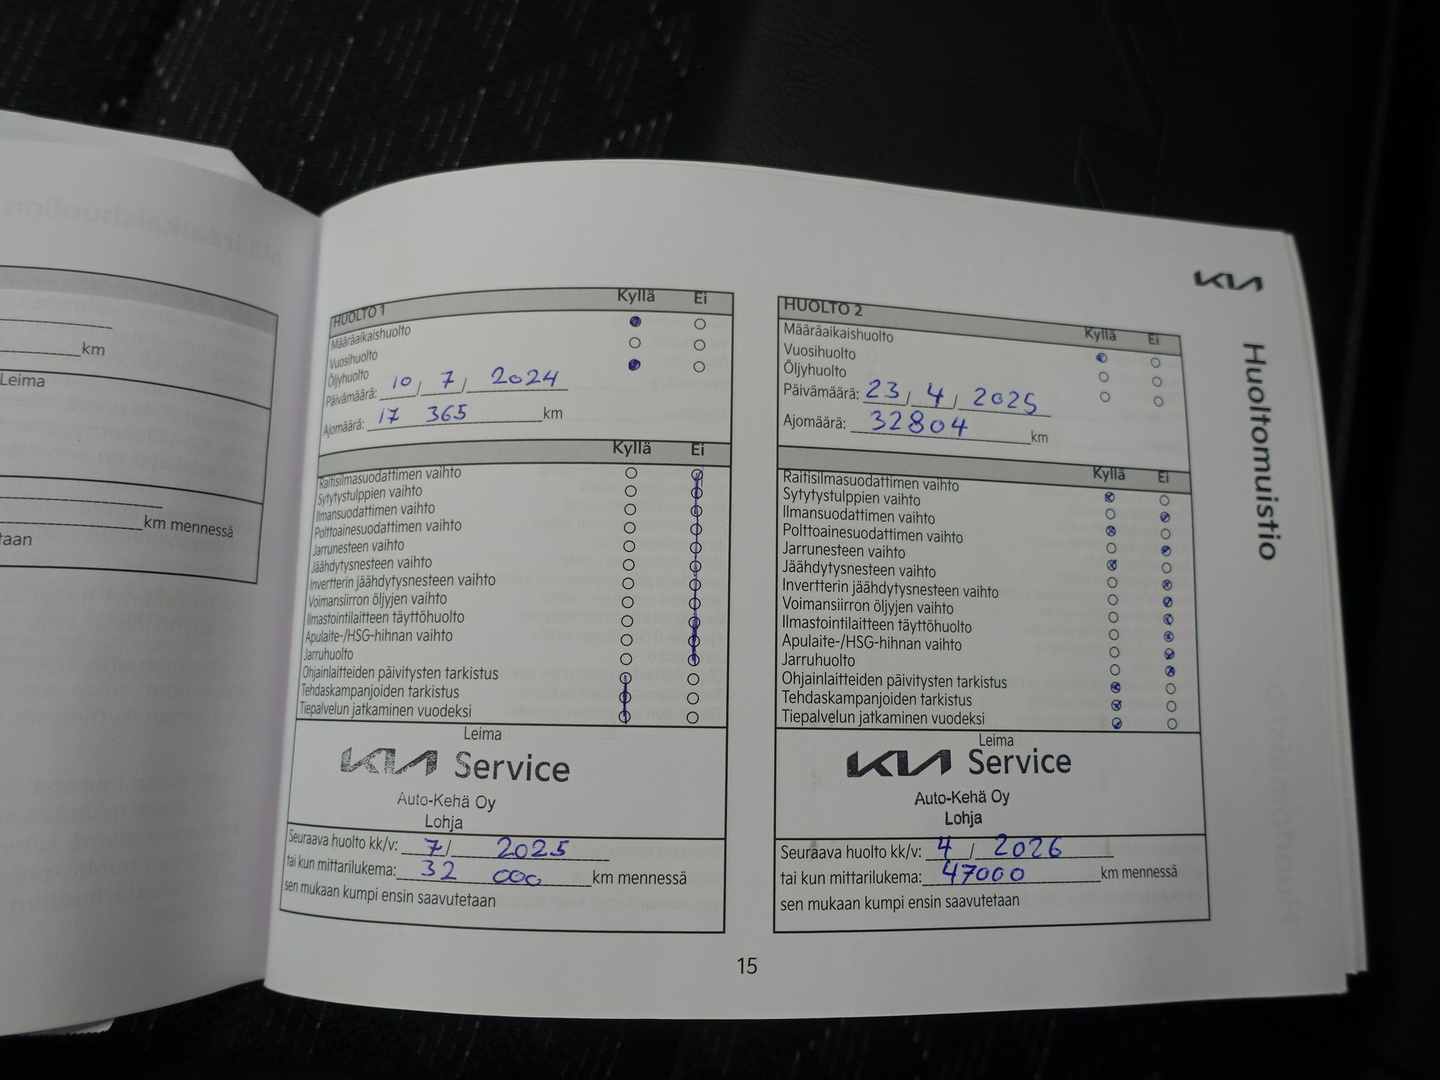 Määräaikaishuollon
km
Leima
km mennessä
taan
KIA
Huoltomuistio
HUOLTO 1 Kyllä Ei
Määräaikaishuolto
Vuosihuolto
Öljyhuolto
Päivämäärä: 10 / 7 / 2024
Ajomäärä: 17 365 km
Kyllä Ei
Raitisilmasuodattimen vaihto
Sytytystulppien vaihto
Ilmansuodattimen vaihto
Polttoainesuodattimen vaihto
Jarrunesteen vaihto
Jäähdytysnesteen vaihto
Invertterin jäähdytysnesteen vaihto
Voimansiirron öljyjen vaihto
Ilmastointilaitteen täyttöhuolto
Apulaite-/HSG-hihnan vaihto
Jarruhuolto
Ohjainlaitteiden päivitysten tarkistus
Tehdaskampanjoiden tarkistus
Tiepalvelun jatkaminen vuodeksi
Leima
KIA Service
Auto-Kehä Oy
Lohja
Seuraava huolto kk/v: 7 / 2025
tai kun mittarilukema: 32 000 km mennessä
sen mukaan kumpi ensin saavutetaan
HUOLTO 2 Kyllä Ei
Määräaikaishuolto
Vuosihuolto
Öljyhuolto
Päivämäärä: 23 / 4 / 2025
Ajomäärä: 32804 km
Kyllä Ei
Raitisilmasuodattimen vaihto
Sytytystulppien vaihto
Ilmansuodattimen vaihto
Polttoainesuodattimen vaihto
Jarrunesteen vaihto
Jäähdytysnesteen vaihto
Invertterin jäähdytysnesteen vaihto
Voimansiirron öljyjen vaihto
Ilmastointilaitteen täyttöhuolto
Apulaite-/HSG-hihnan vaihto
Jarruhuolto
Ohjainlaitteiden päivitysten tarkistus
Tehdaskampanjoiden tarkistus
Tiepalvelun jatkaminen vuodeksi
Leima
KIA Service
Auto-Kehä Oy
Lohja
Seuraava huolto kk/v: 4 / 2026
tai kun mittarilukema: 47000 km mennessä
sen mukaan kumpi ensin saavutetaan
15